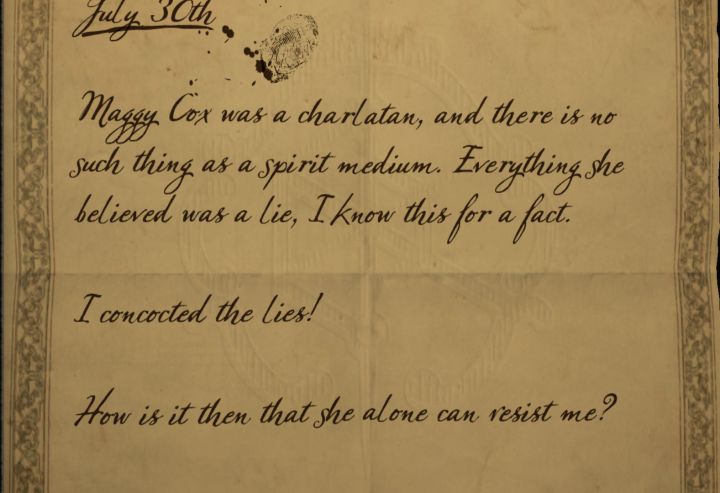 July 30th
Maggy Cox was a charlatan, and there is no
such thing as a spirit medium. Everything she
believed was a lie, I know this for a fact.
I concocted the lies!
How is it then that she alone can resist me?